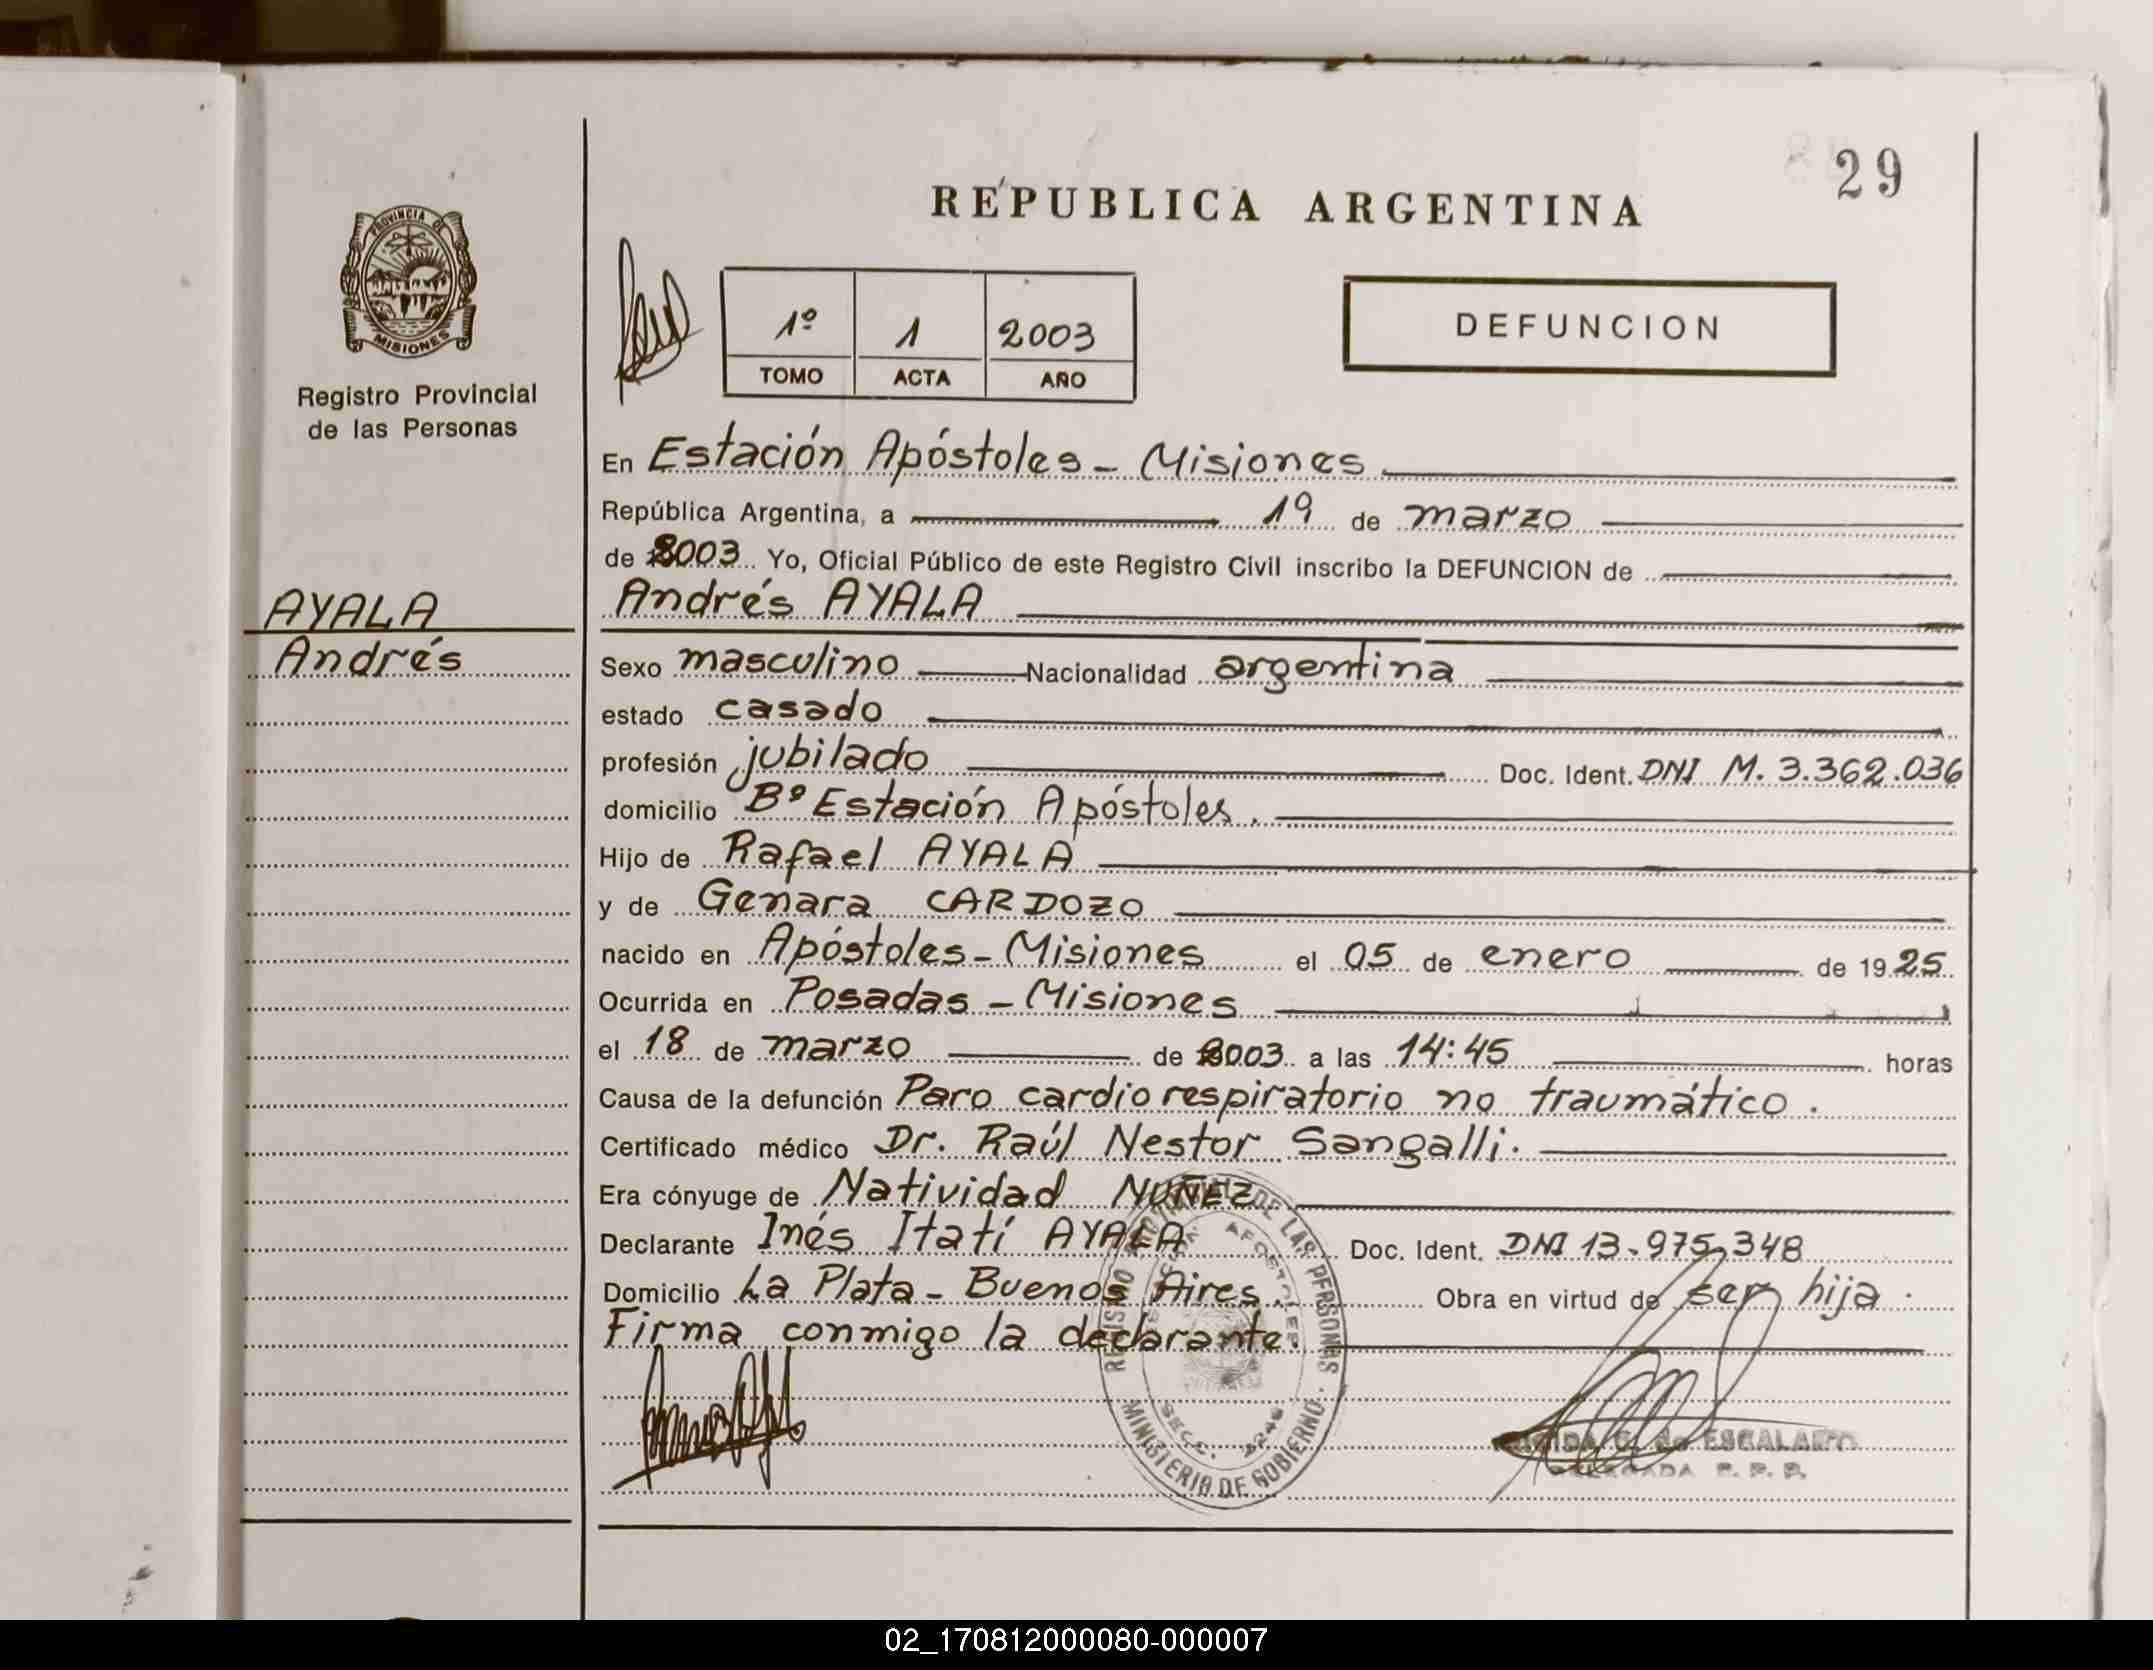 29
REPUBLICA ARGENTINA
PROVINCIA DE
MISIONES
Registro Provincial
de las Personas
1º 1 2003
TOMO ACTA AÑO
DEFUNCION
En Estación Apóstoles - Misiones
República Argentina, a 19 de marzo
de 2003 Yo, Oficial Público de este Registro Civil inscribo la DEFUNCION de
AYALA
Andrés AYALA
Andrés
Sexo masculino Nacionalidad argentina
estado casado
profesión jubilado Doc. Ident. DNI M. 3.362.036
domicilio Bº Estación Apóstoles.
Hijo de Rafael AYALA
y de Genara CARDOZO
nacido en Apóstoles - Misiones el 05 de enero de 1925
Ocurrida en Posadas - Misiones
el 18 de marzo de 2003 a las 14:45 horas
Causa de la defunción Paro cardiorespiratorio no traumático.
Certificado médico Dr. Raúl Nestor Sangalli.
Era cónyuge de Natividad NUÑEZ
Declarante Inés Itatí AYALA Doc. Ident. DNI 13.975.348
Domicilio La Plata - Buenos Aires. Obra en virtud de ser hija.
Firma conmigo la declarante.
REGISTRO DE LAS PERSONAS
MINISTERIO DE GOBIERNO
de ESCALANTE
DELEGADA R. P. P.
02_170812000080-000007